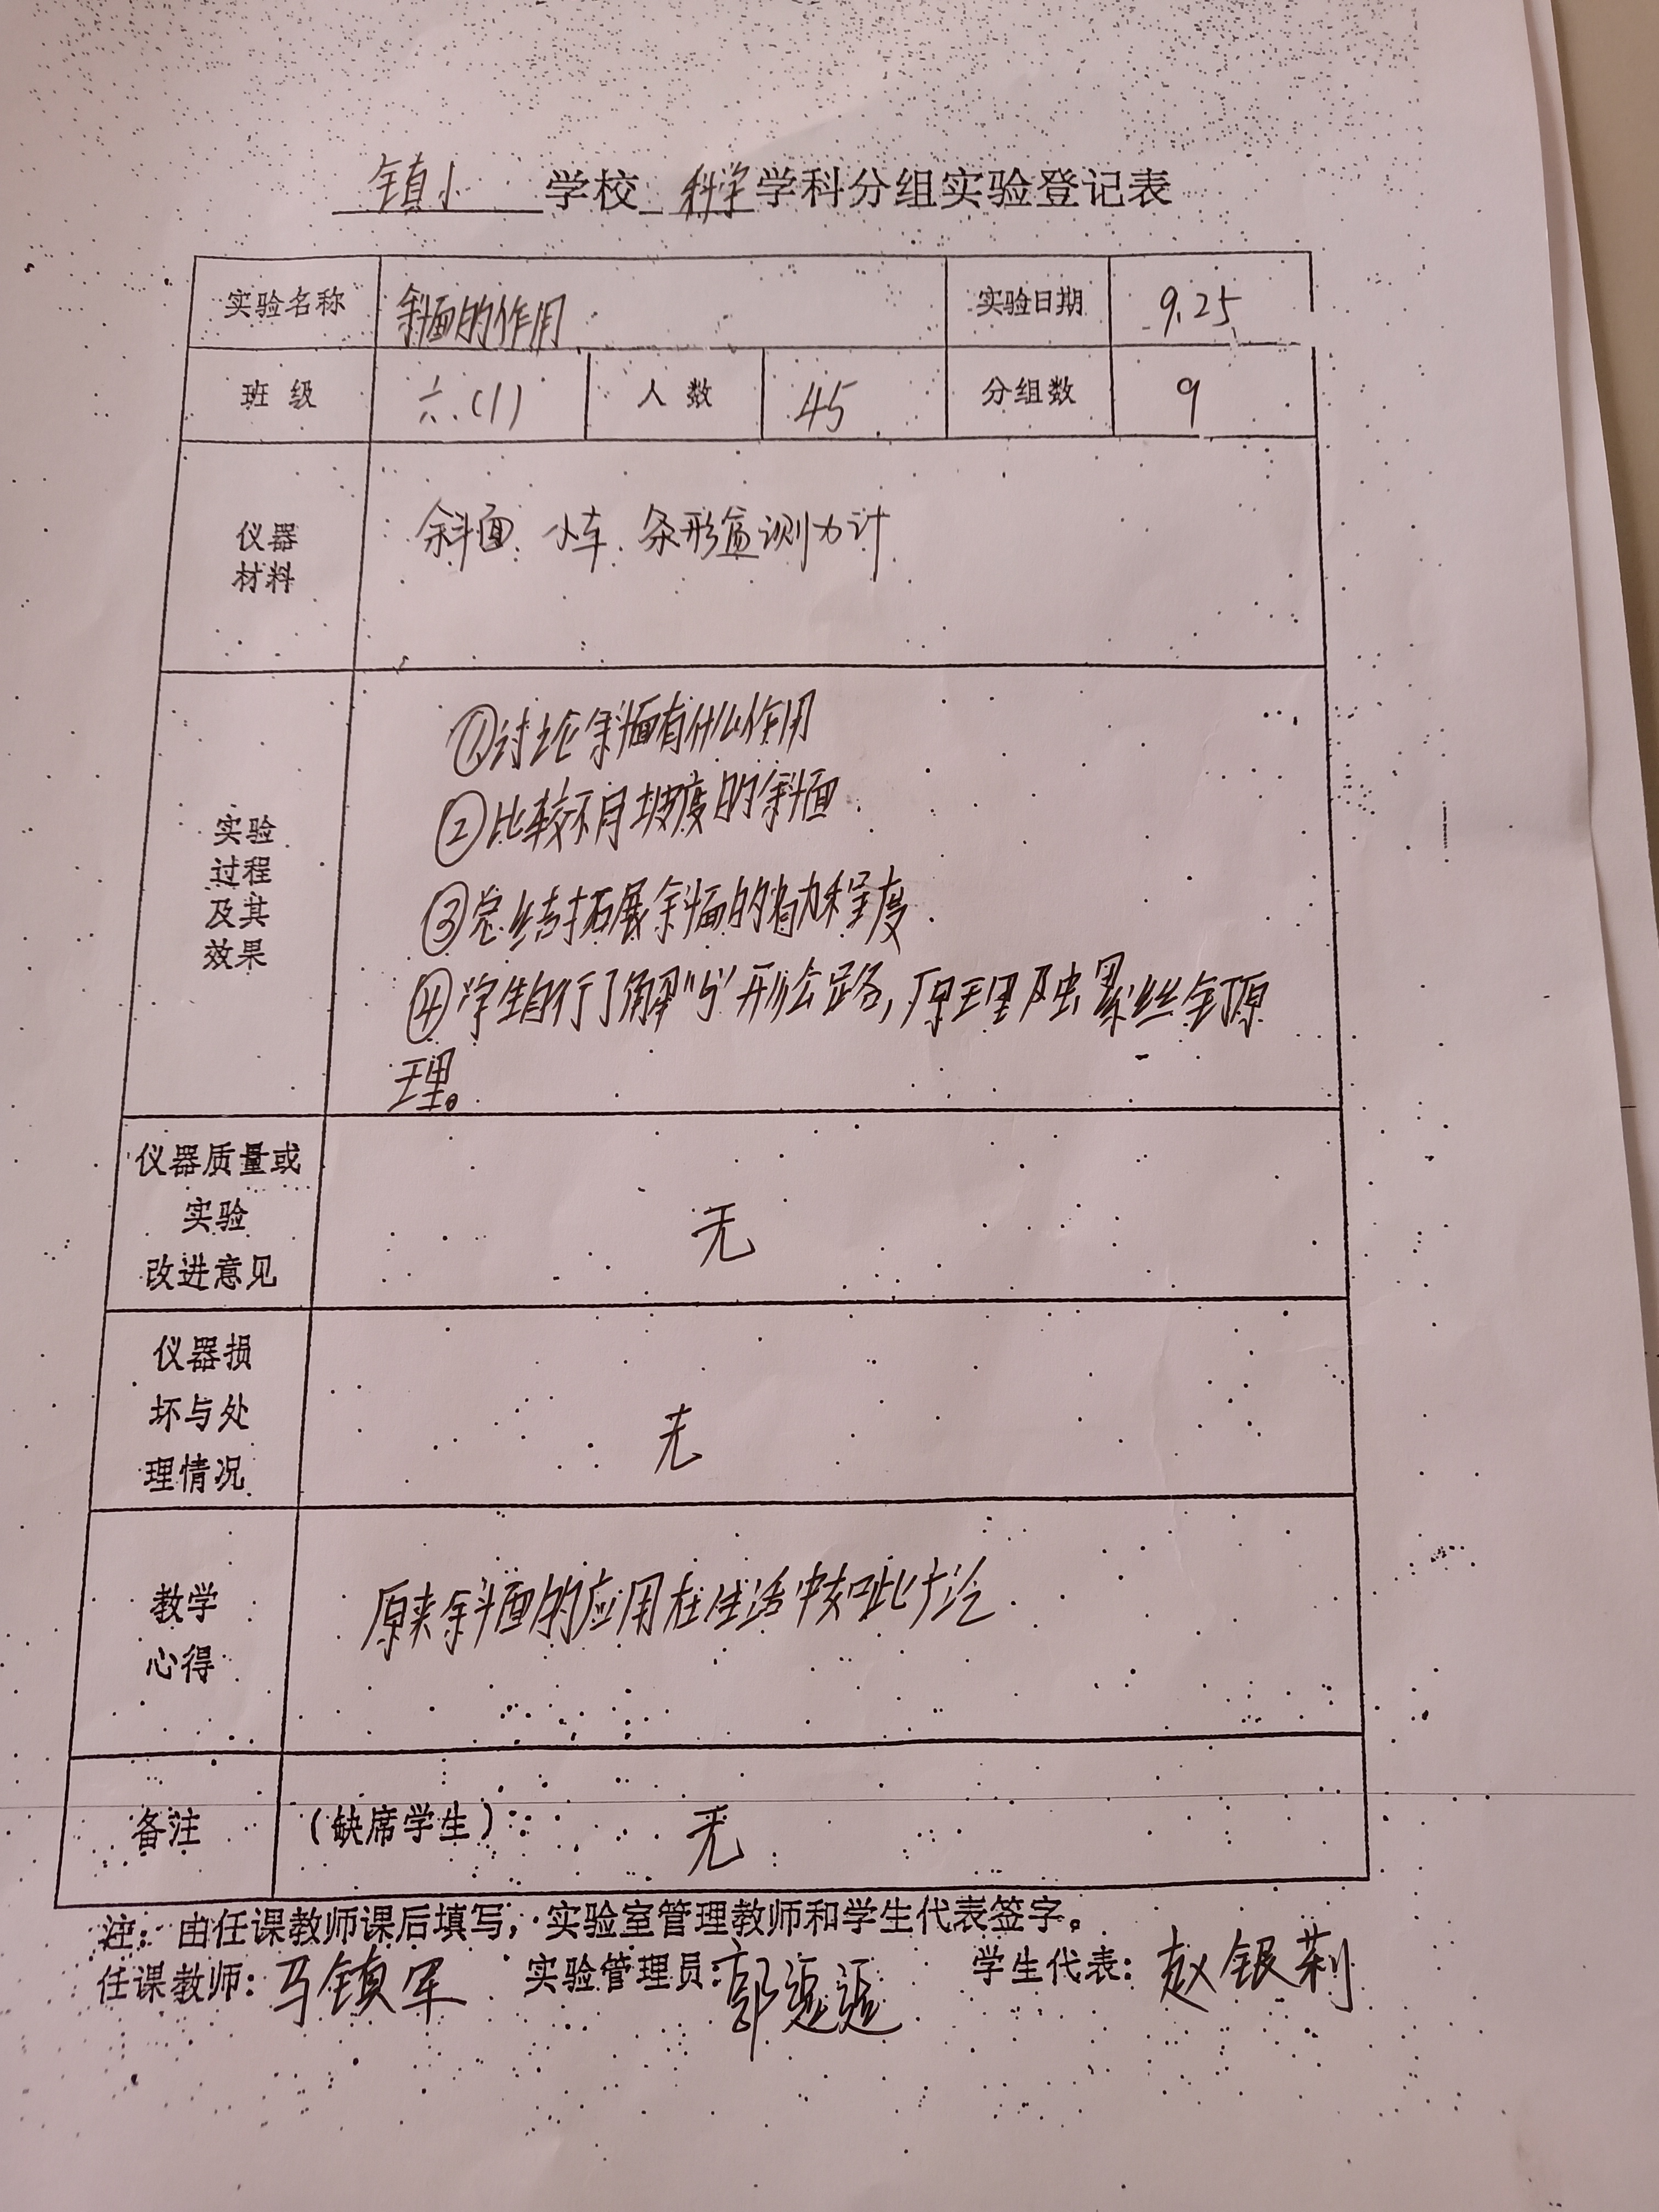 镇小 学校 科学 学科分组实验登记表
实验名称 斜面的作用 实验日期 9.25
班级 六.(1) 人数 45 分组数 9
仪器
材料
斜面、小车、条形盒测力计
实验
过程
及其
效果
①讨论斜面有什么作用
②比较不同坡度的斜面.
③总结拓展斜面的省力程度.
④学生自行了解“S”形公路,原理及螺丝钉原
理。
仪器质量或
实验
改进意见
无
仪器损
坏与处
理情况
无
教学
心得
原来斜面的应用在生活中如此广泛.
备注 (缺席学生): 无
注: 由任课教师课后填写,实验室管理教师和学生代表签字。
任课教师: 马镇军 实验管理员: 郭 学生代表: 赵银莉